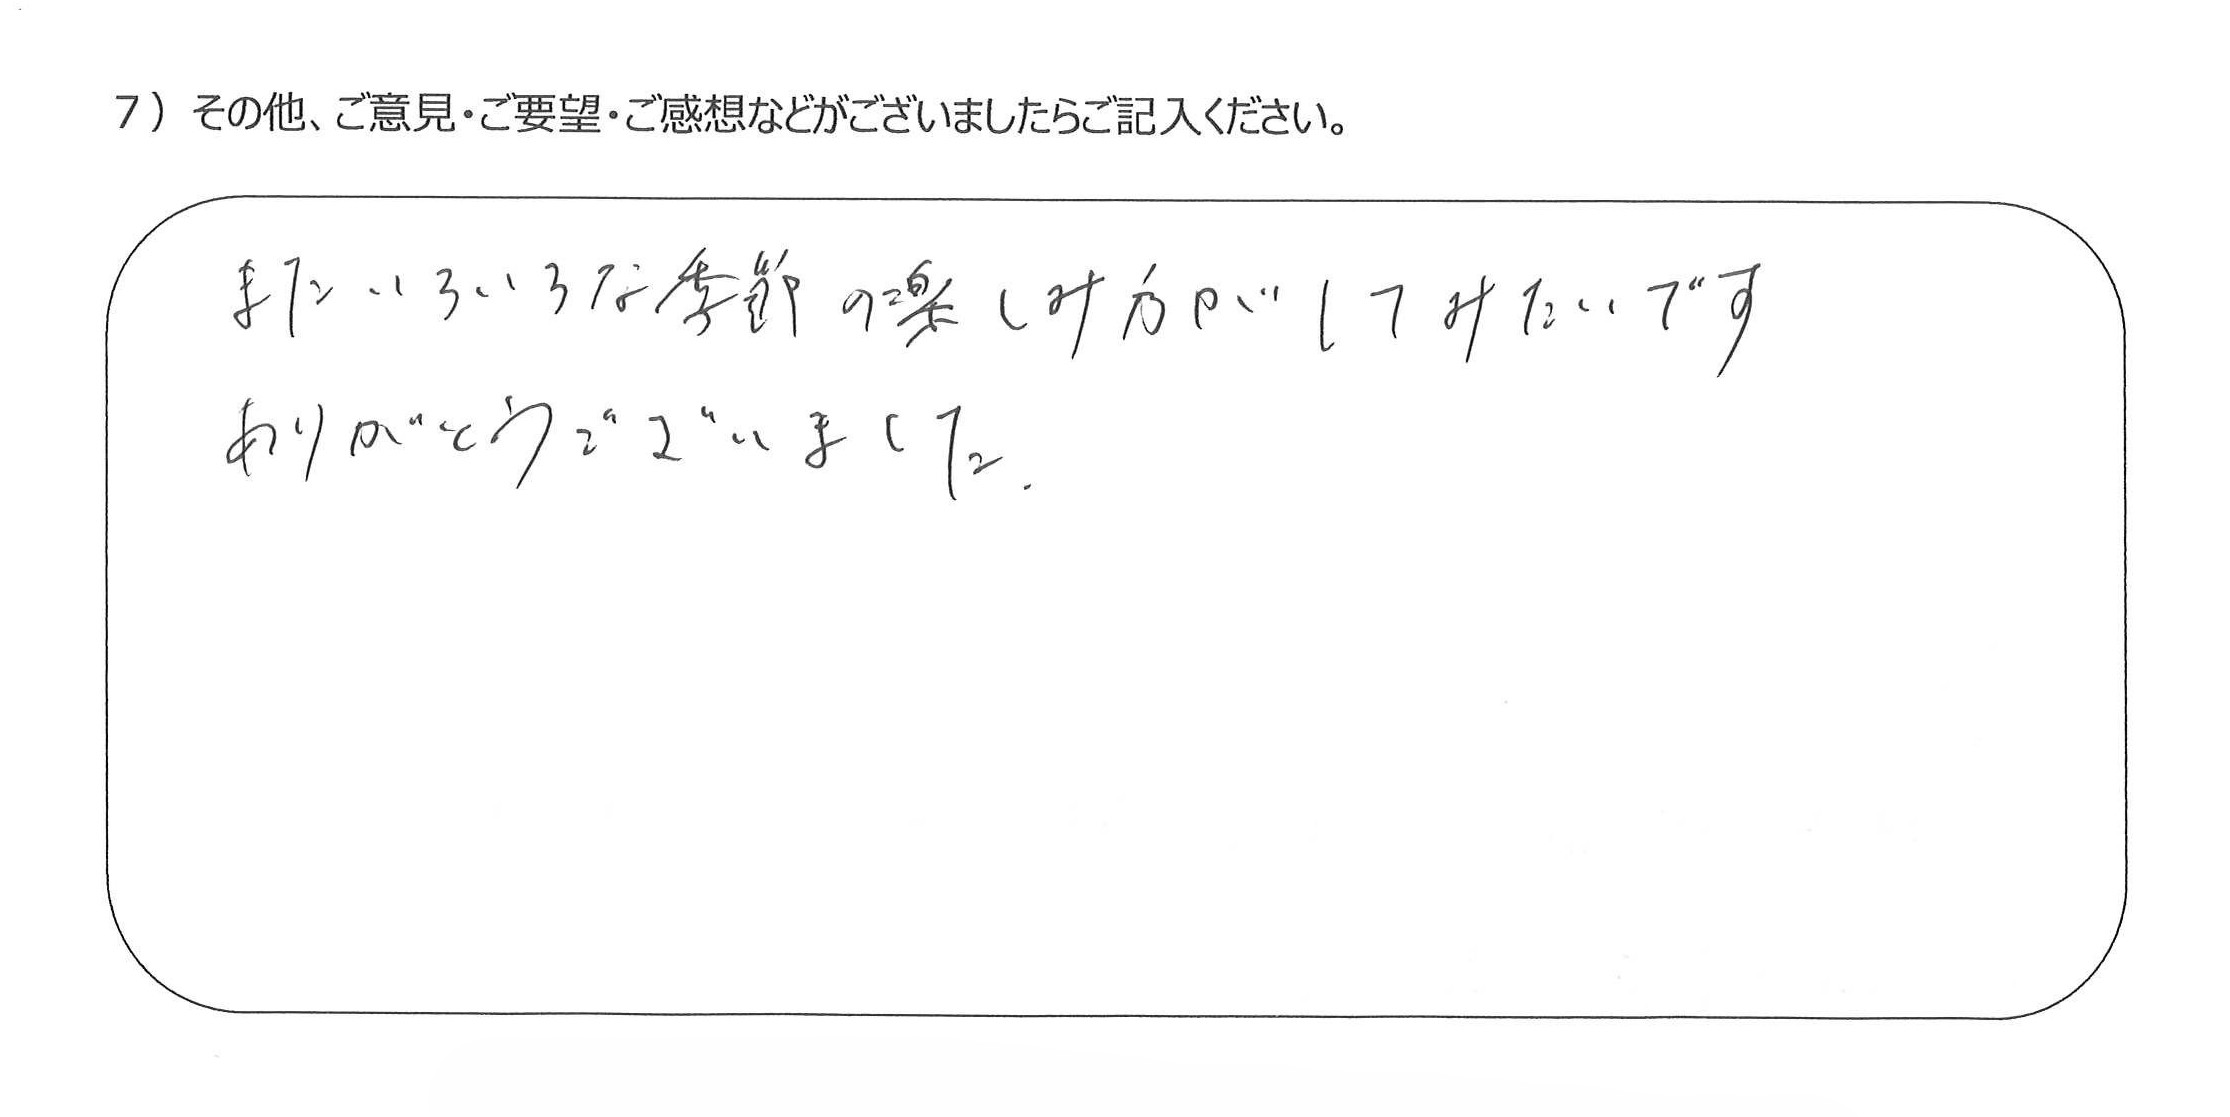 7）その他、ご意見・ご要望・ご感想などがございましたらご記入ください。
またいろいろな季節の楽しみ方がしてみたいです
ありがとうございました.